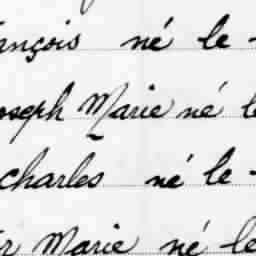 ançois né le -
oseph Marie né le
charles né le -
Marie né le